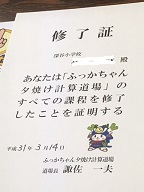 修了証
深谷小学校
殿
あなたは「ふっかちゃん
夕焼け計算道場」の
すべての課程を修了
したことを証明する
平成31年3月14日
ふっかちゃん夕焼け計算道場
道場長 諏佐 一夫